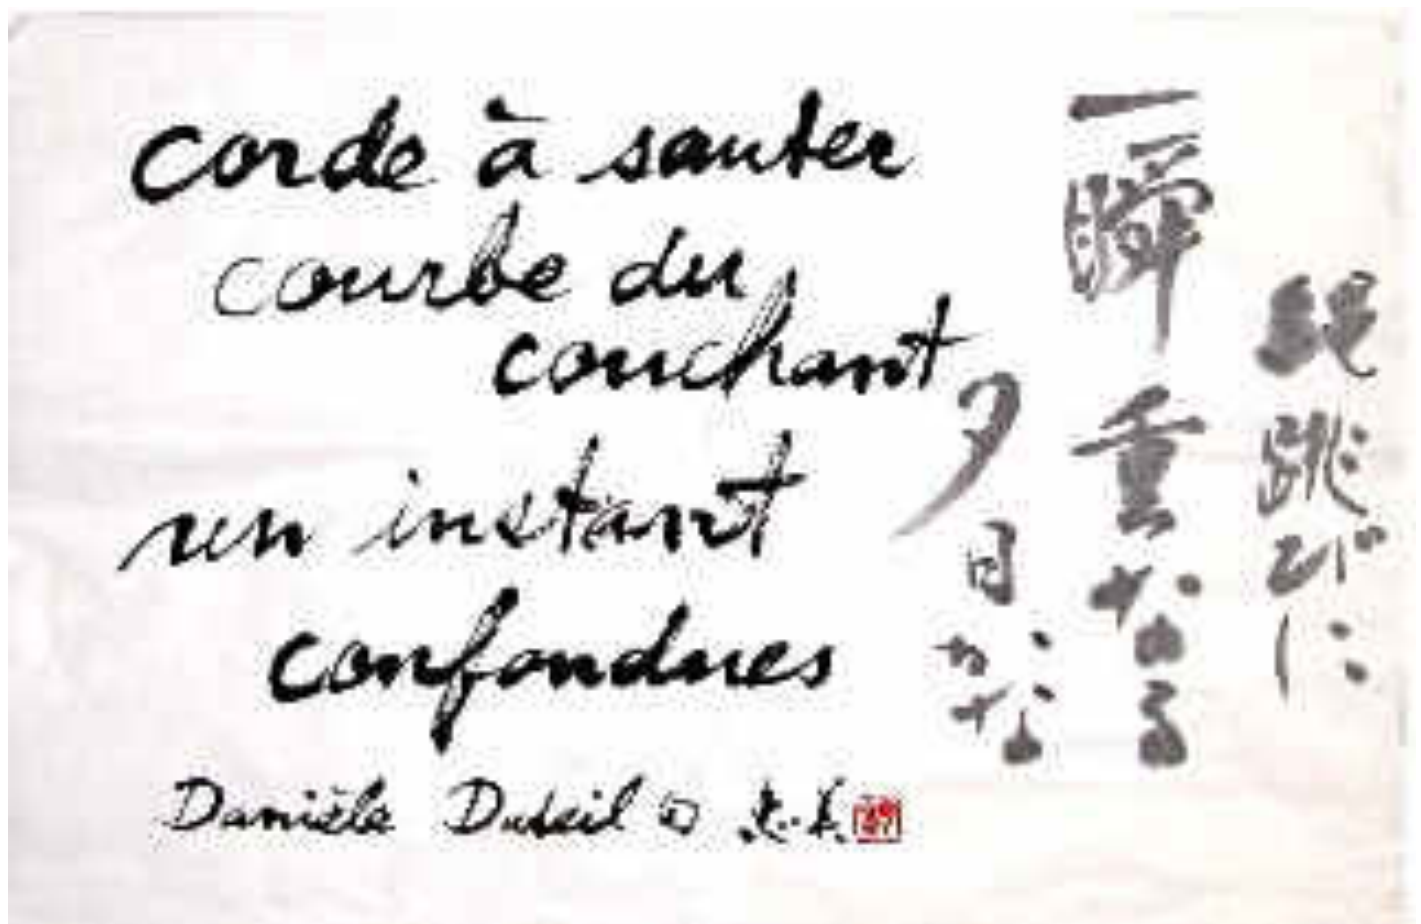 corde à sauter
courbe du
couchant
un instant
confondues
Danièle Duteil
縄跳びに
一瞬重なる
夕日かな